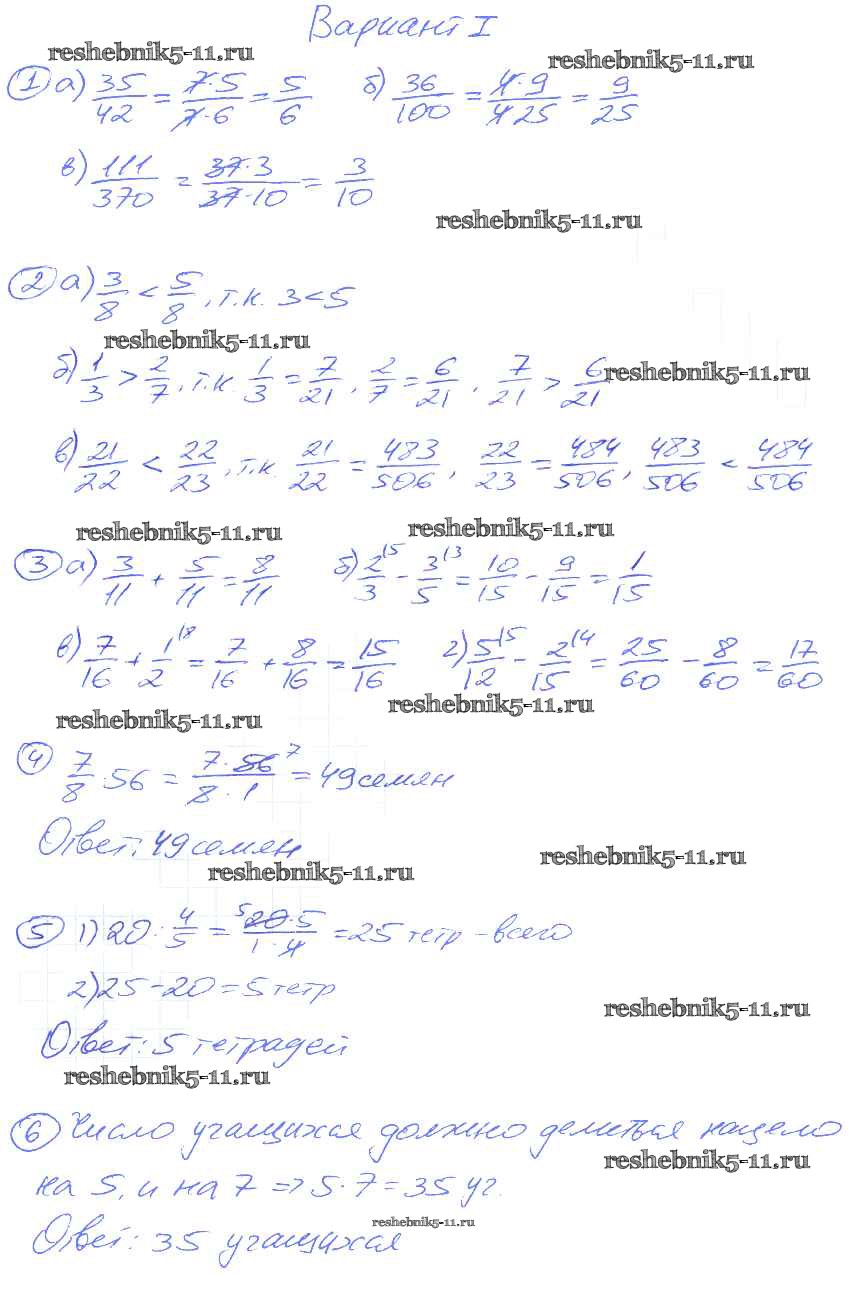 Вариант I
reshebnik5-11.ru
reshebnik5-11.ru
① а) 35/42 = 7·5/7·6 = 5/6 б) 36/100 = 4·9/4·25 = 9/25
в) 111/370 = 37·3/37·10 = 3/10
reshebnik5-11.ru
② а) 3/8 < 5/8, т.к. 3<5
reshebnik5-11.ru
б) 1/3 > 2/7, т.к. 1/3 = 7/21, 2/7 = 6/21, 7/21 > 6/21
reshebnik5-11.ru
в) 21/22 < 22/23, т.к. 21/22 = 483/506, 22/23 = 484/506, 483/506 < 484/506
reshebnik5-11.ru
reshebnik5-11.ru
③ а) 3/11 + 5/11 = 8/11 б) 2/3 ⁽⁵ - 3/5 ⁽³ = 10/15 - 9/15 = 1/15
в) 7/16 + 1/2 ⁽⁸ = 7/16 + 8/16 = 15/16 г) 5/12 ⁽⁵ - 2/15 ⁽⁴ = 25/60 - 8/60 = 17/60
reshebnik5-11.ru
reshebnik5-11.ru
④ 7/8 · 56 = 7·56 ⁷/8·1 = 49 семян
Ответ: 49 семян
reshebnik5-11.ru
reshebnik5-11.ru
⑤ 1) 20 : 4/5 = ⁵20·5/1·4 = 25 тетр - всего
2) 25-20=5 тетр
reshebnik5-11.ru
Ответ: 5 тетрадей
reshebnik5-11.ru
⑥ Число учащихся должно делиться нацело
reshebnik5-11.ru
на 5, и на 7 => 5·7=35 уч.
reshebnik5-11.ru
Ответ: 35 учащихся